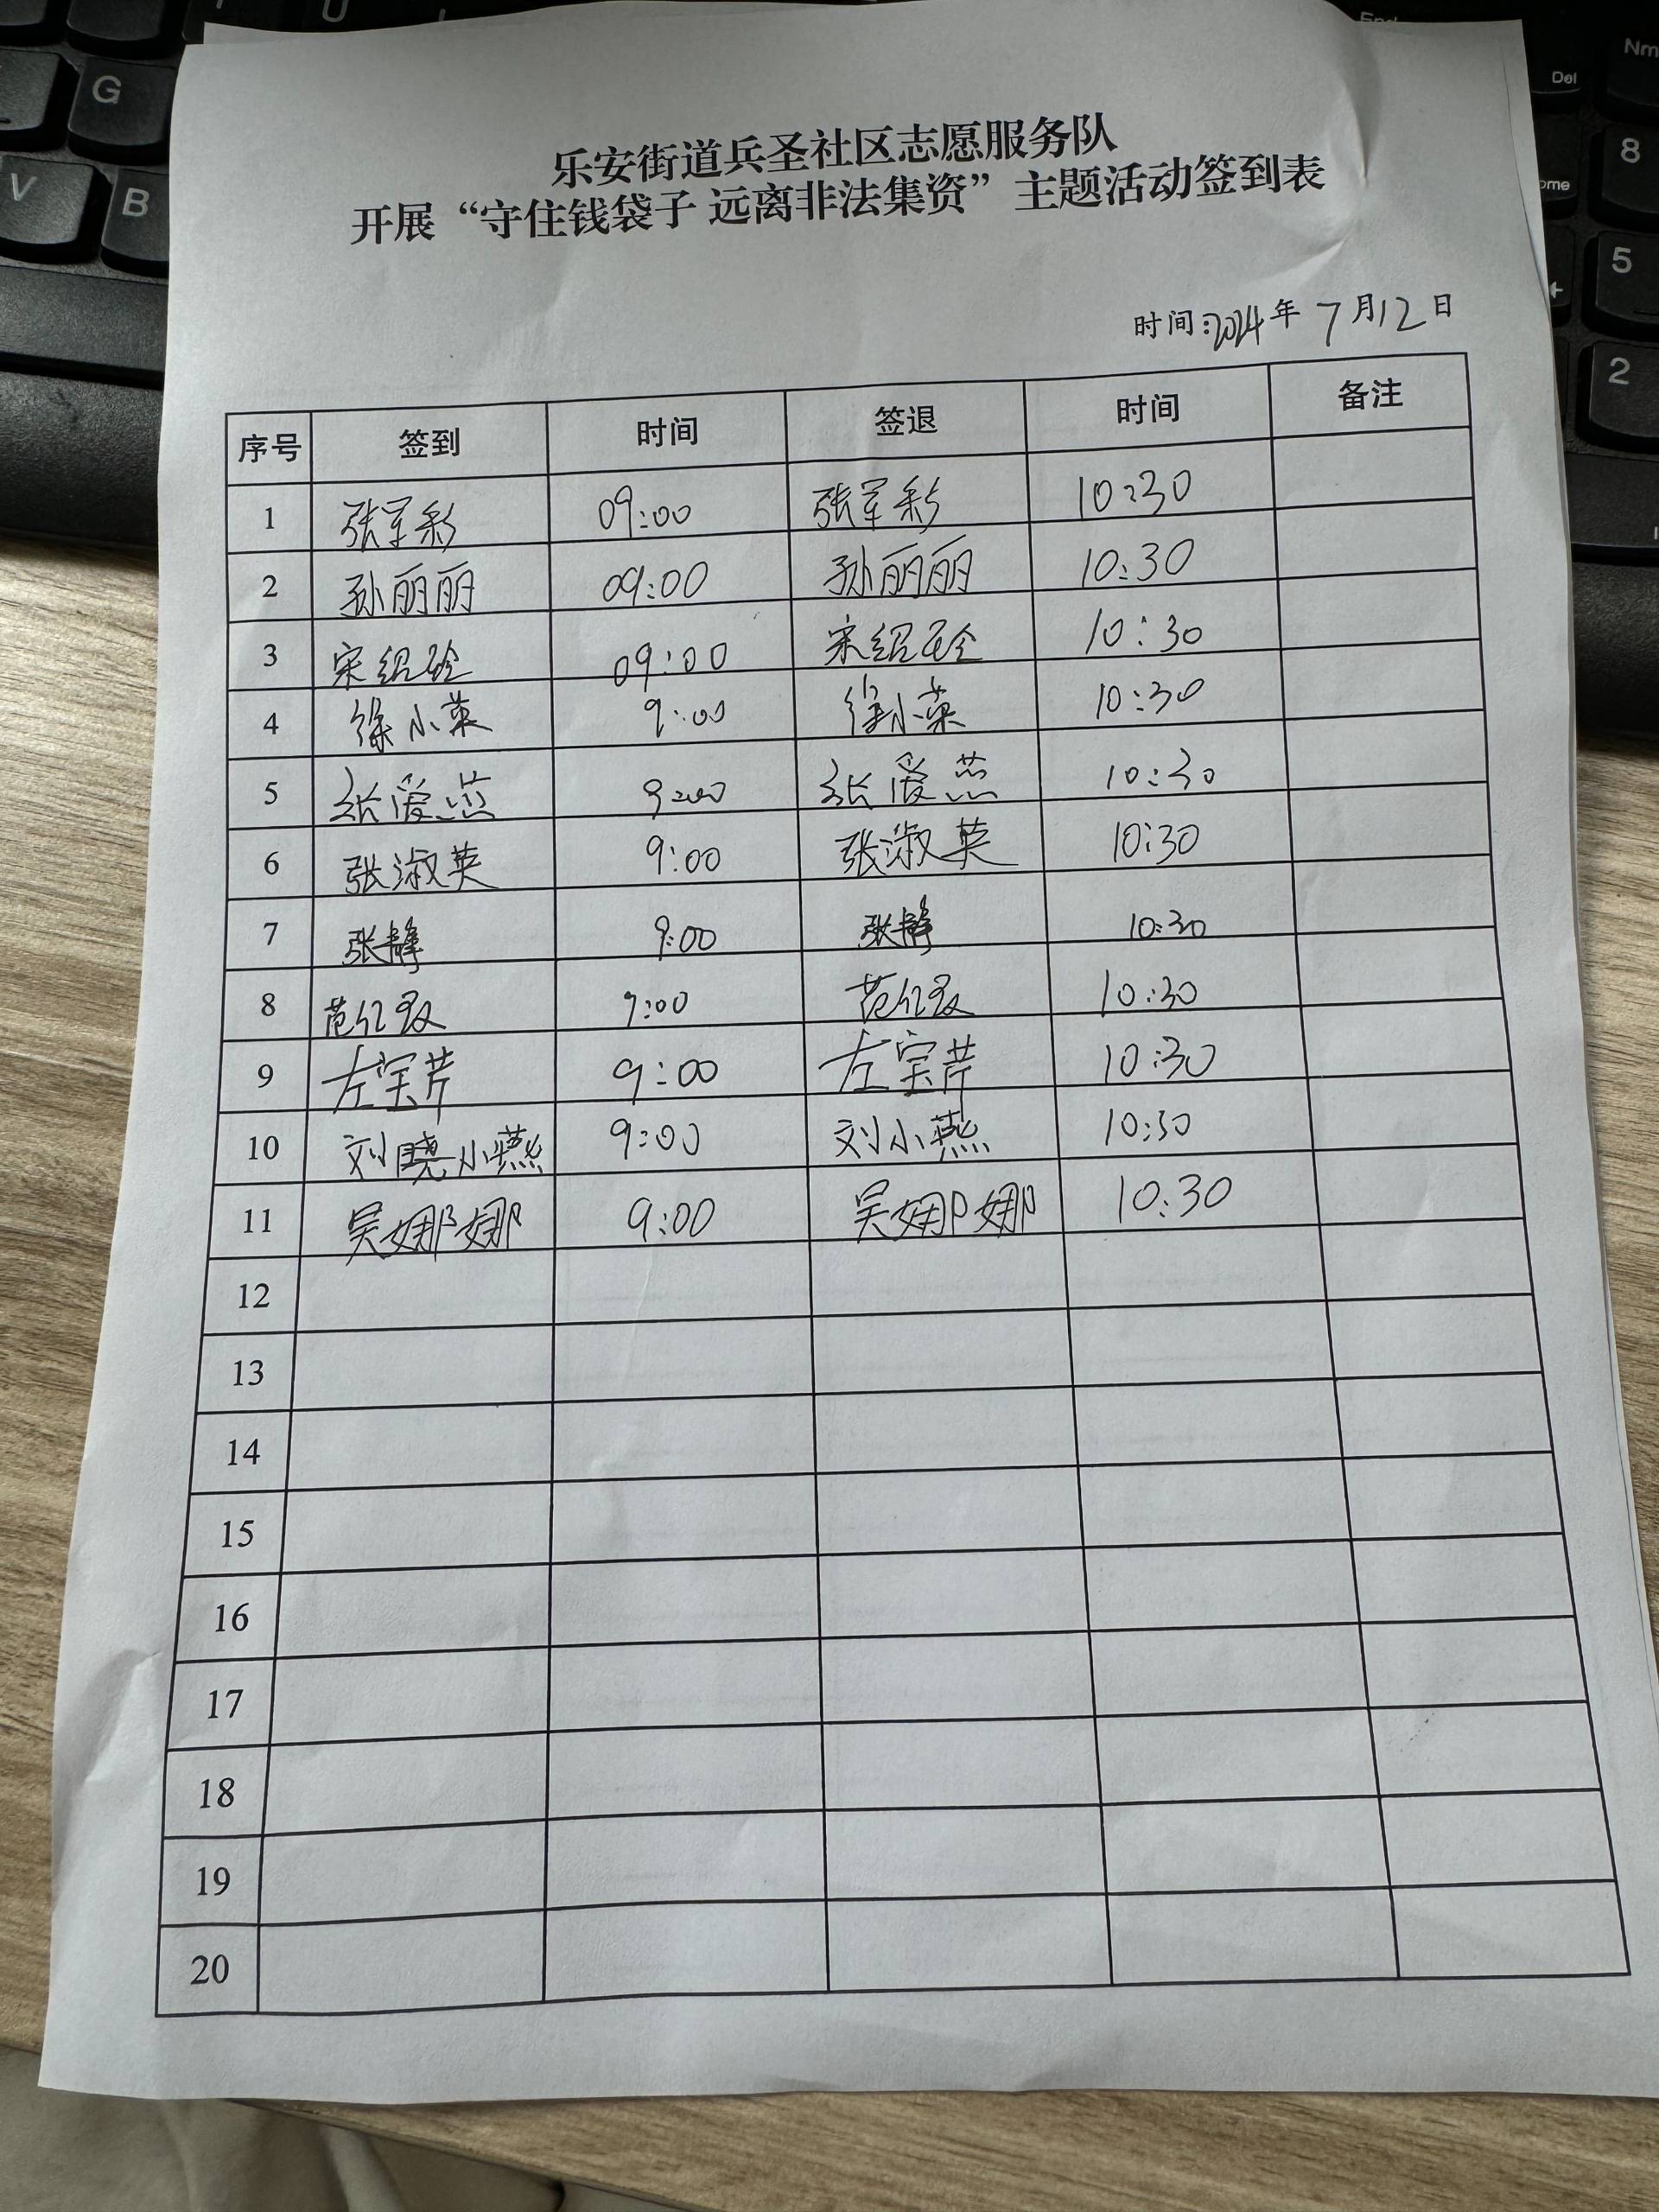 乐安街道兵圣社区志愿服务队
开展“守住钱袋子 远离非法集资”主题活动签到表
时间:2024年7月12日
序号 签到 时间 签退 时间 备注
1 张军彩 09:00 张军彩 10:30
2 孙丽丽 09:00 孙丽丽 10:30
3 宋绍玲 09:00 宋绍玲 10:30
4 徐小菜 9:00 徐小菜 10:30
5 张爱燕 9:00 张爱燕 10:30
6 张淑英 9:00 张淑英 10:30
7 张静 9:00 张静 10:30
8 范红 9:00 范红 10:30
9 左宝芹 9:00 左宝芹 10:30
10 刘小燕 9:00 刘小燕 10:30
11 吴娜娜 9:00 吴娜娜 10:30
12
13
14
15
16
17
18
19
20